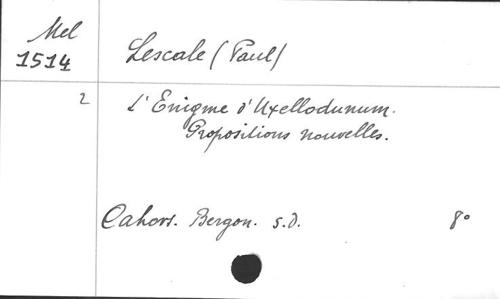 Mel
1514
Lescale (Paul)
2
L'Enigme d'Uxellodunum.
Propositions nouvelles.
Cahors. Bergon. s.d.
8°